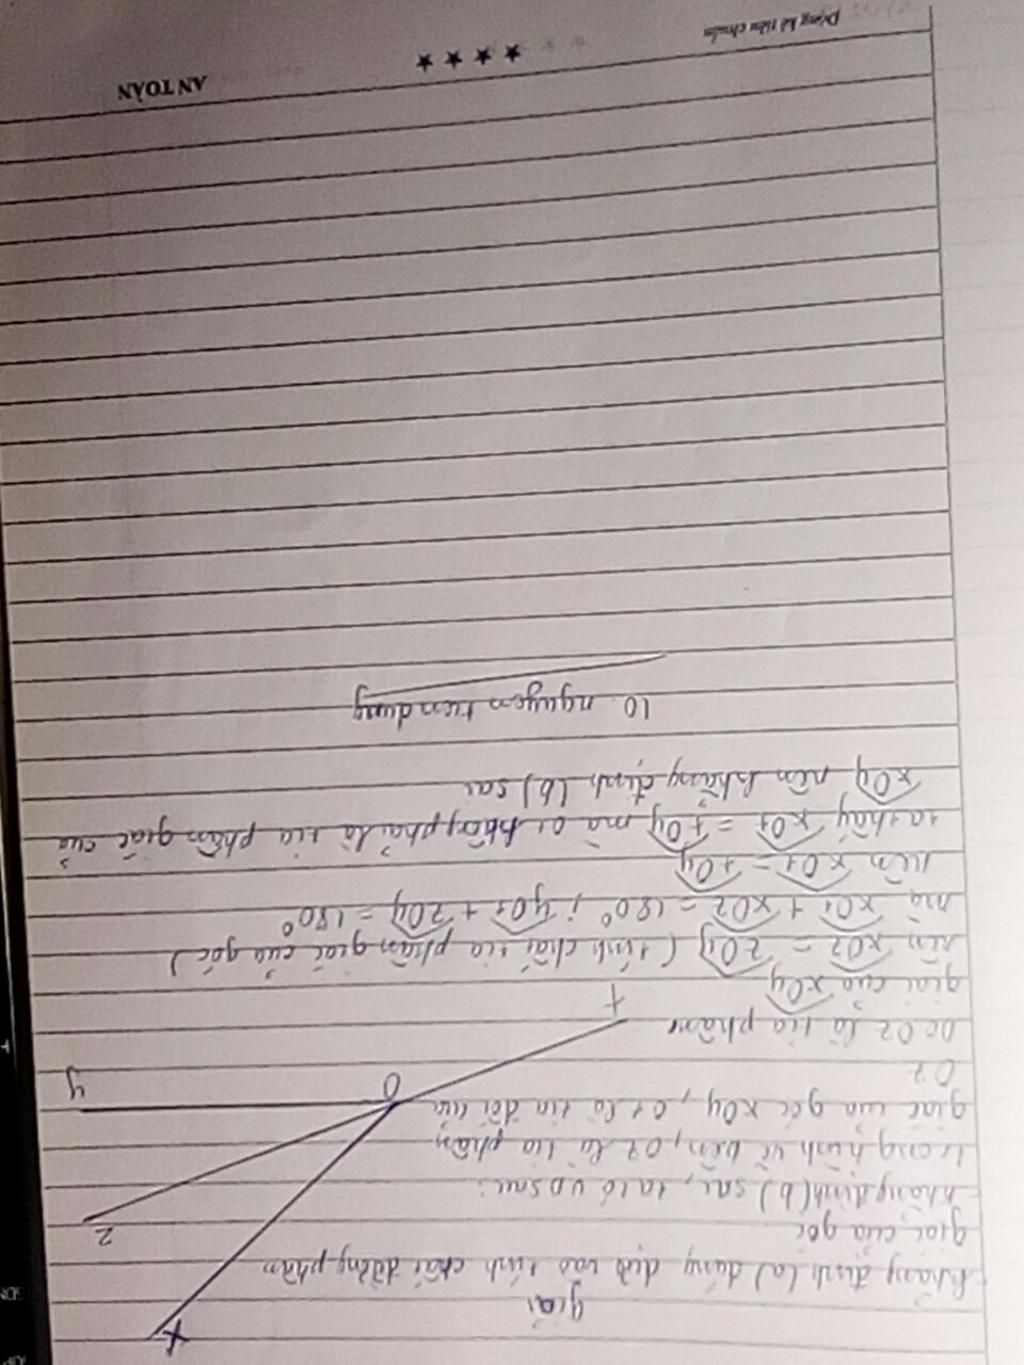 giải
Khẳng định (a) đúng dựa vào tính chất đường phân
giác của góc
khẳng định (b) sai, ta có VD sau:
trong hình vẽ bên, Oz là tia phân
giác của góc xOy, Ot là tia đối của
Oz
Do Oz là tia phân
giác của xOy
nên xOz = zOy (tính chất tia phân giác của góc)
mà xOt + xOz = 180° ; yOt + zOy = 180°
nên xOt = tOy
ta thấy xOt = tOy mà Ot không phải là tia phân giác của
xOy nên khẳng định (b) sai
10. nguyen tien dung
x
z
y
O
t
AN TOÀN
★ ★ ★ ★
Dòng kẻ tiêu chuẩn